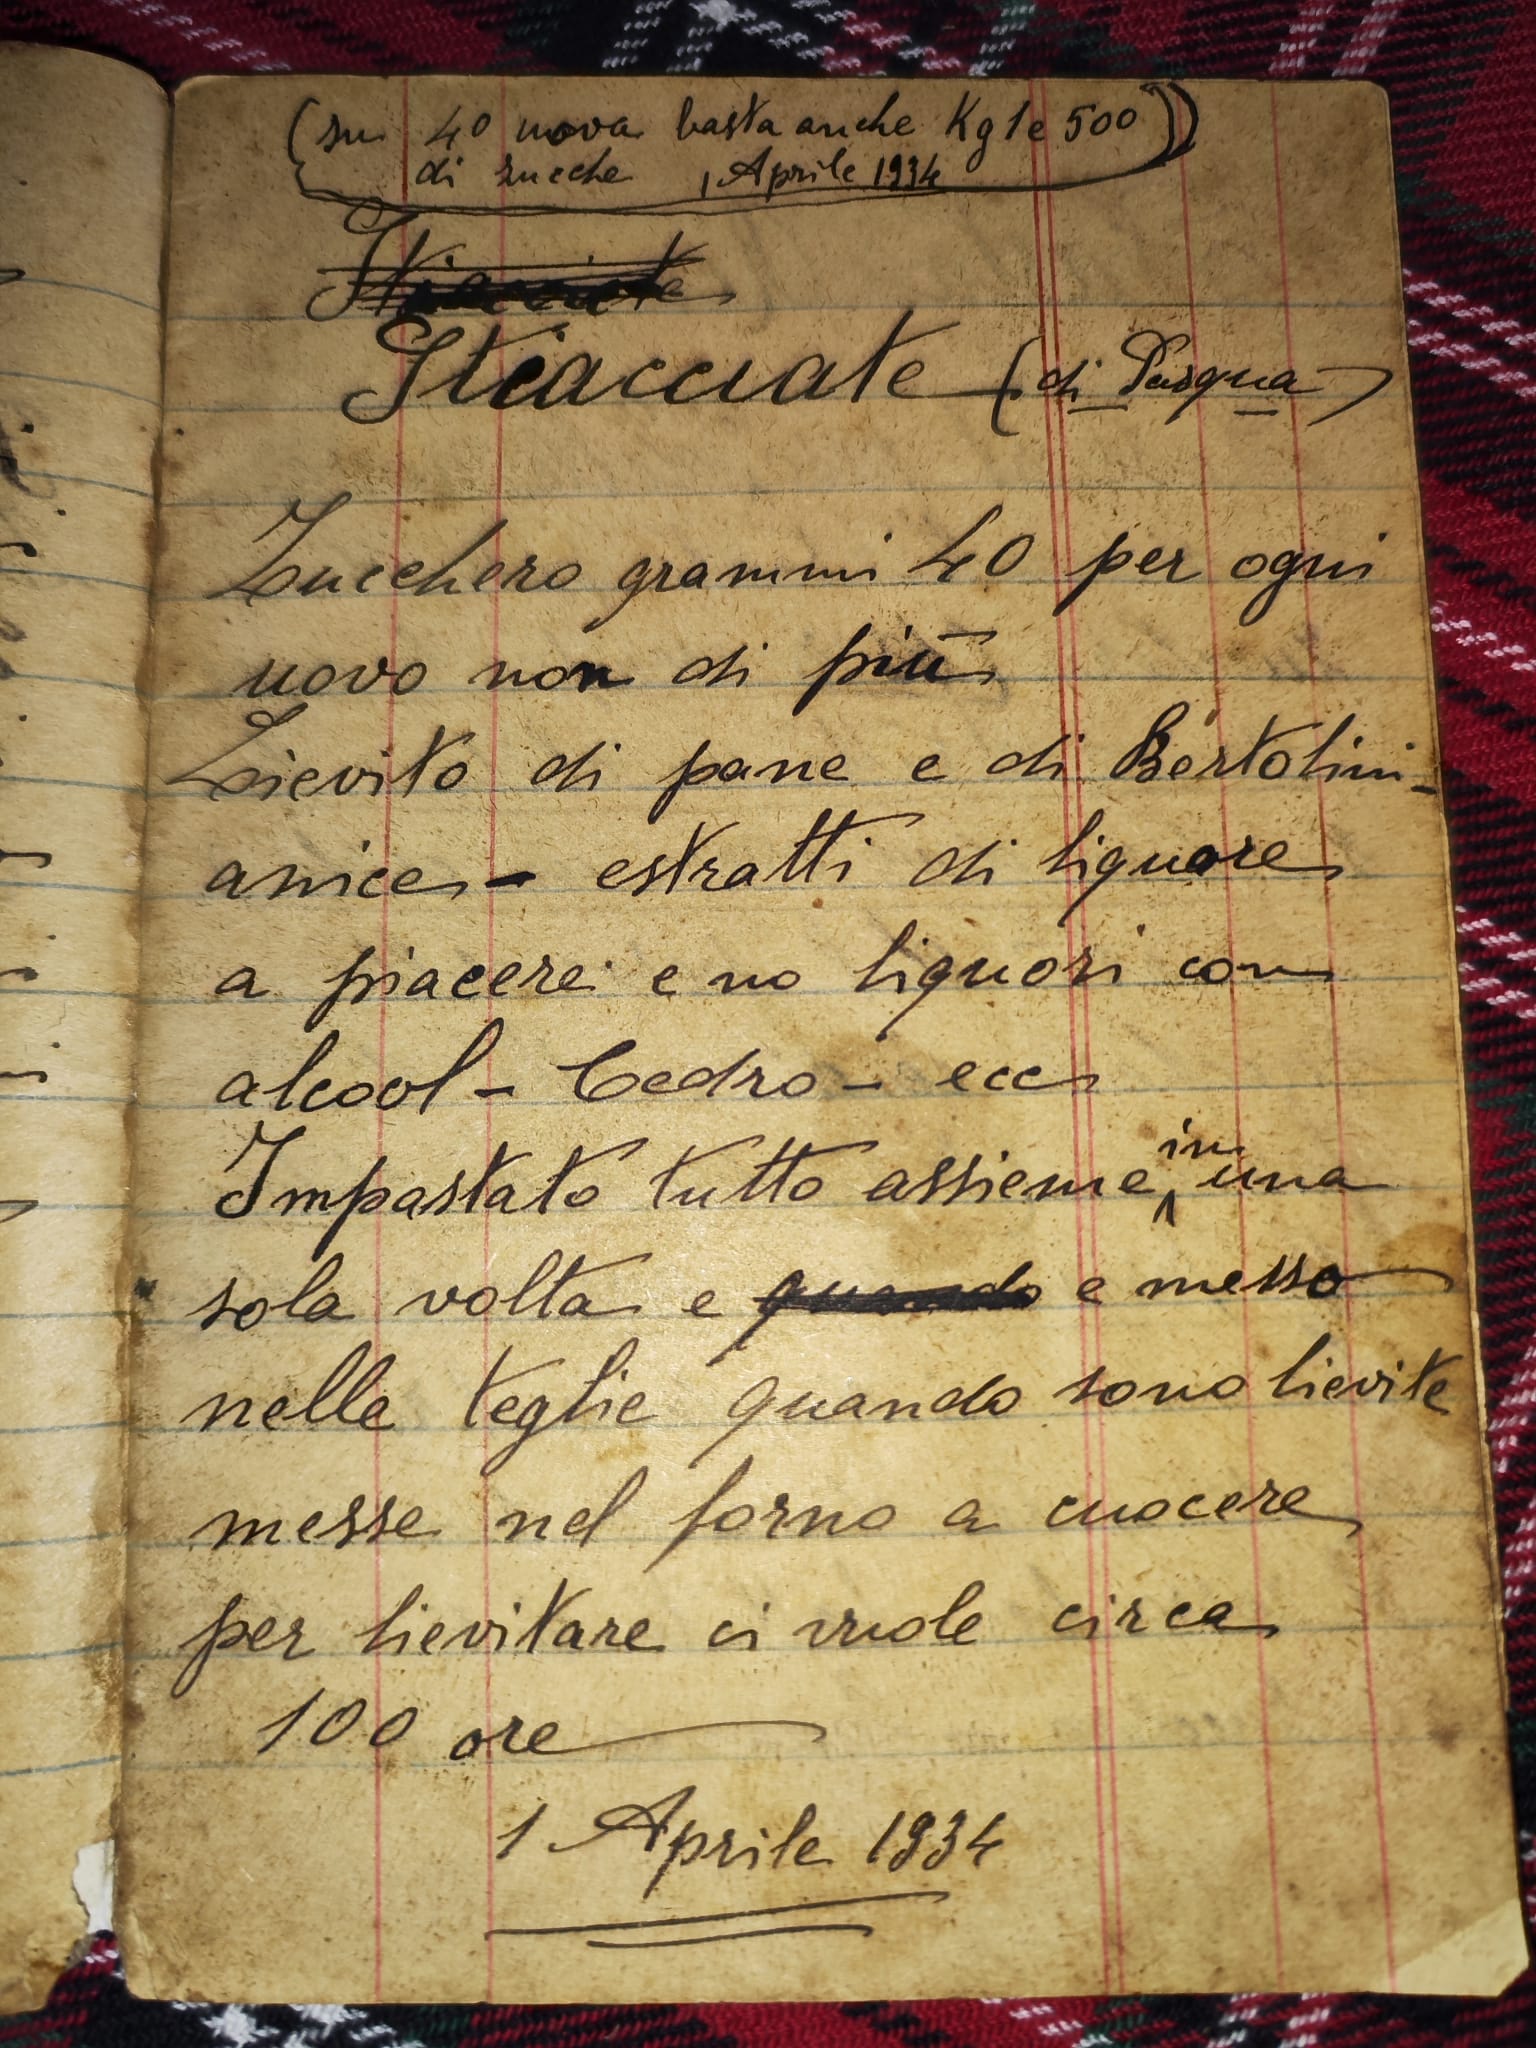 (su 40 uova basta anche Kg 1 e 500
di zucche 1 Aprile 1934)
Stiacciate (di Pasqua)
Zucchero grammi 40 per ogni
uovo non di più
Lievito di pane e di Bertolini -
anice - estratti di liquore
a piacere e no liquori con
alcool - Cedro - ecc
Impastato tutto assieme in una
sola volta e quando e messo
nelle teglie quando sono lievite
messe nel forno a cuocere
per lievitare ci vuole circa
100 ore
1 Aprile 1934